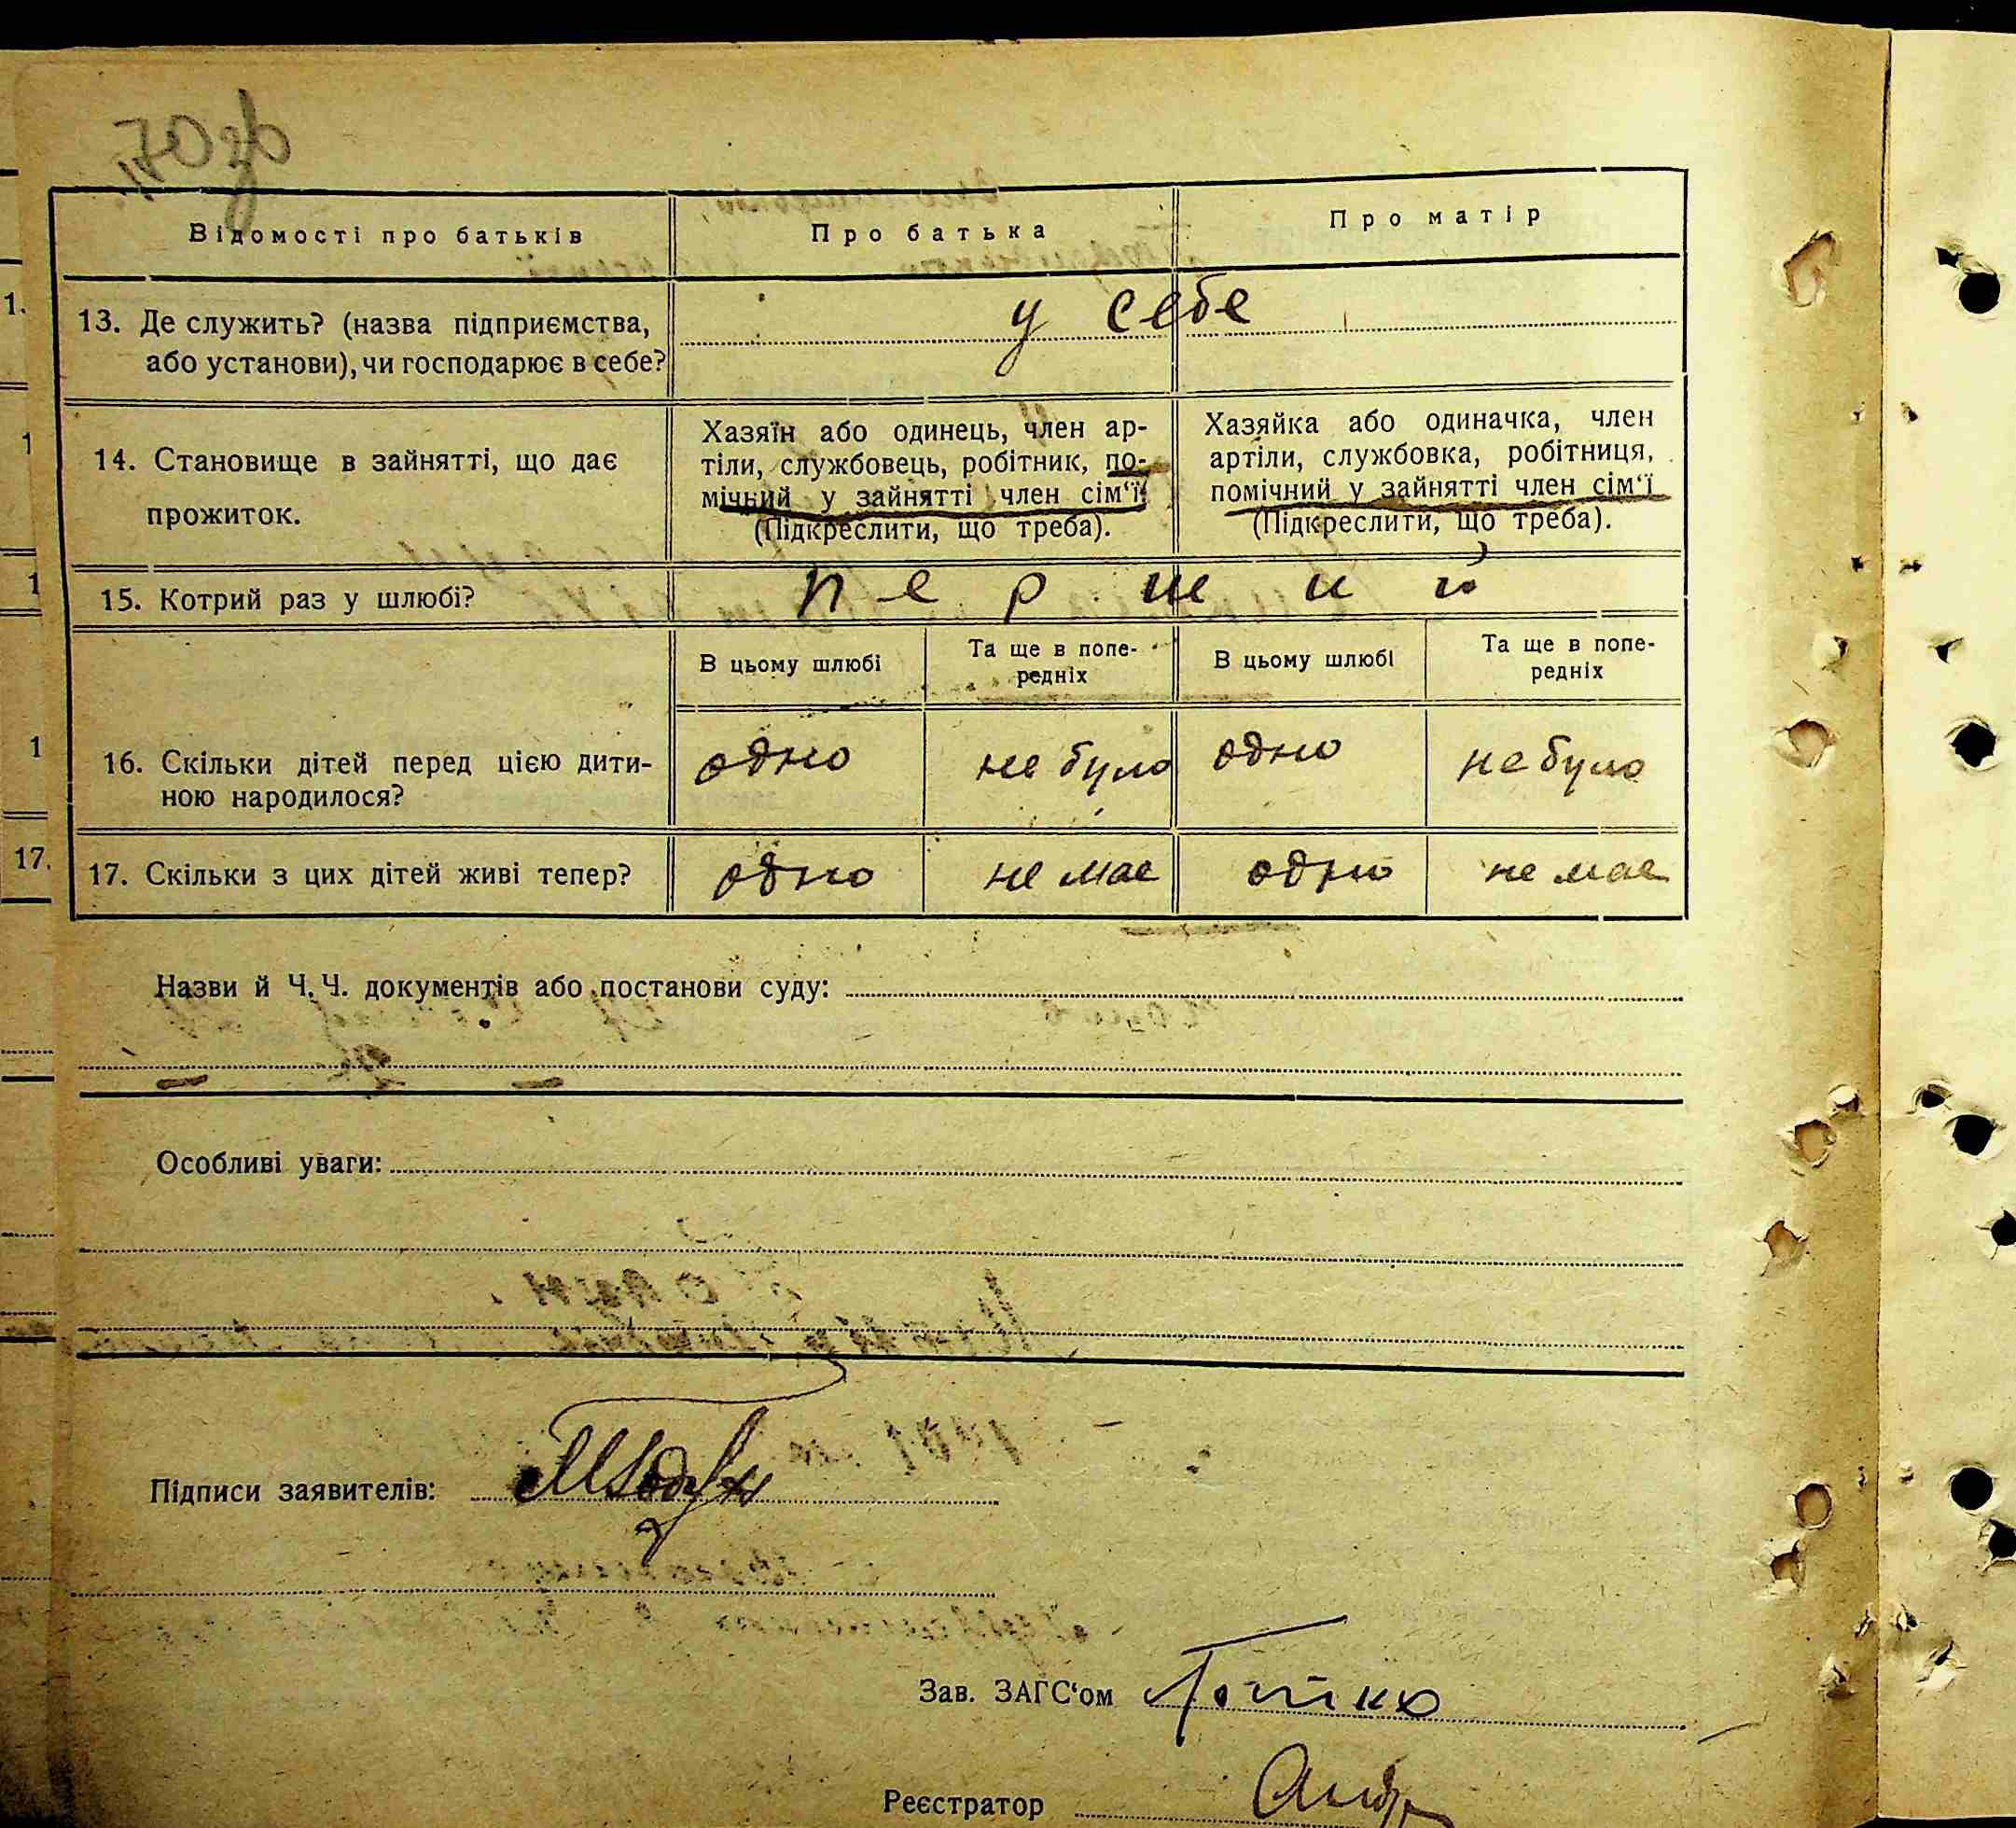 Відомості про батьків Про батька Про матір
13. Де служить? (назва підприємства,
або установи), чи господарює в себе?
у себе
14. Становище в зайнятті, що дає
прожиток.
Хазяїн або одинець, член ар-
тіли, службовець, робітник, по-
мічний у зайнятті член сім‘ї
(Підкреслити, що треба).
Хазяйка або одиначка, член
артіли, службовка, робітниця,
помічний у зайнятті член сім‘ї
(Підкреслити, що треба).
15. Котрий раз у шлюбі? перший
В цьому шлюбі
Та ще в попе-
редніх
В цьому шлюбі
Та ще в попе-
редніх
16. Скільки дітей перед цією дити-
ною народилося?
одно не було одно не було
17. Скільки з цих дітей живі тепер? одно не має одно не має
Назви й Ч.Ч. документів або постанови суду:
Особливі уваги:
Підписи заявителів:
Зав. ЗАГС‘ом
Реєстратор
1.
1
1
1
17.